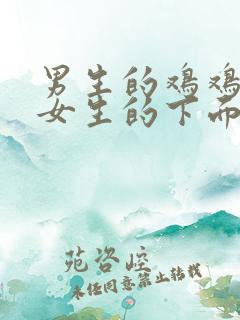 男生的鸡鸡
女生的下面
苑咨崆
未经同意禁止转载